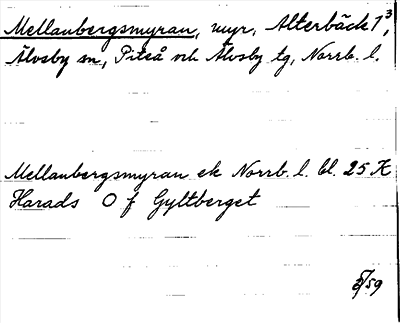 Mellanbergsmyran, myr, Alterbäck 1³,
Älvsby sn, Piteå och Älvsby tg, Norrb. l.
Mellanbergsmyran ek Norrb. l. bl. 25 K
Harads O f Gyltberget
5/59